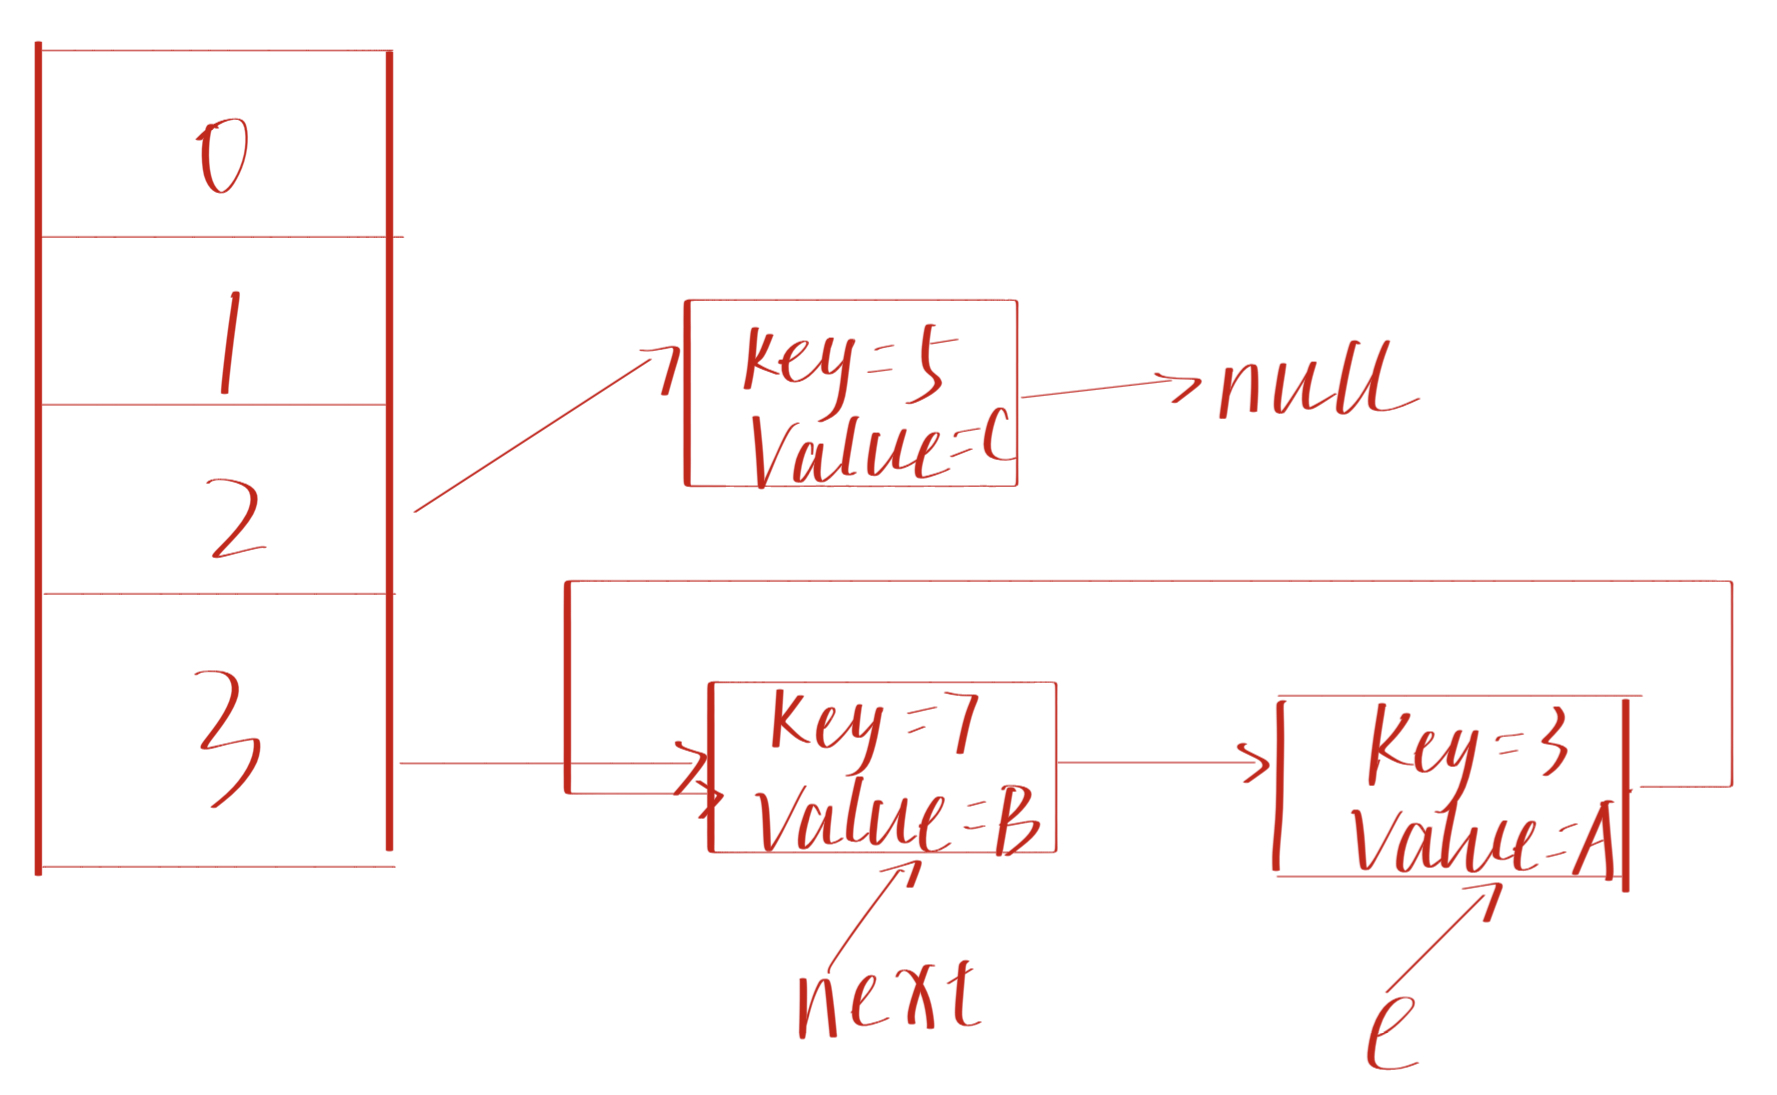 0
1
2
3
key=5
Value=C
null
key=7
Value=B
key=3
Value=A
next
e